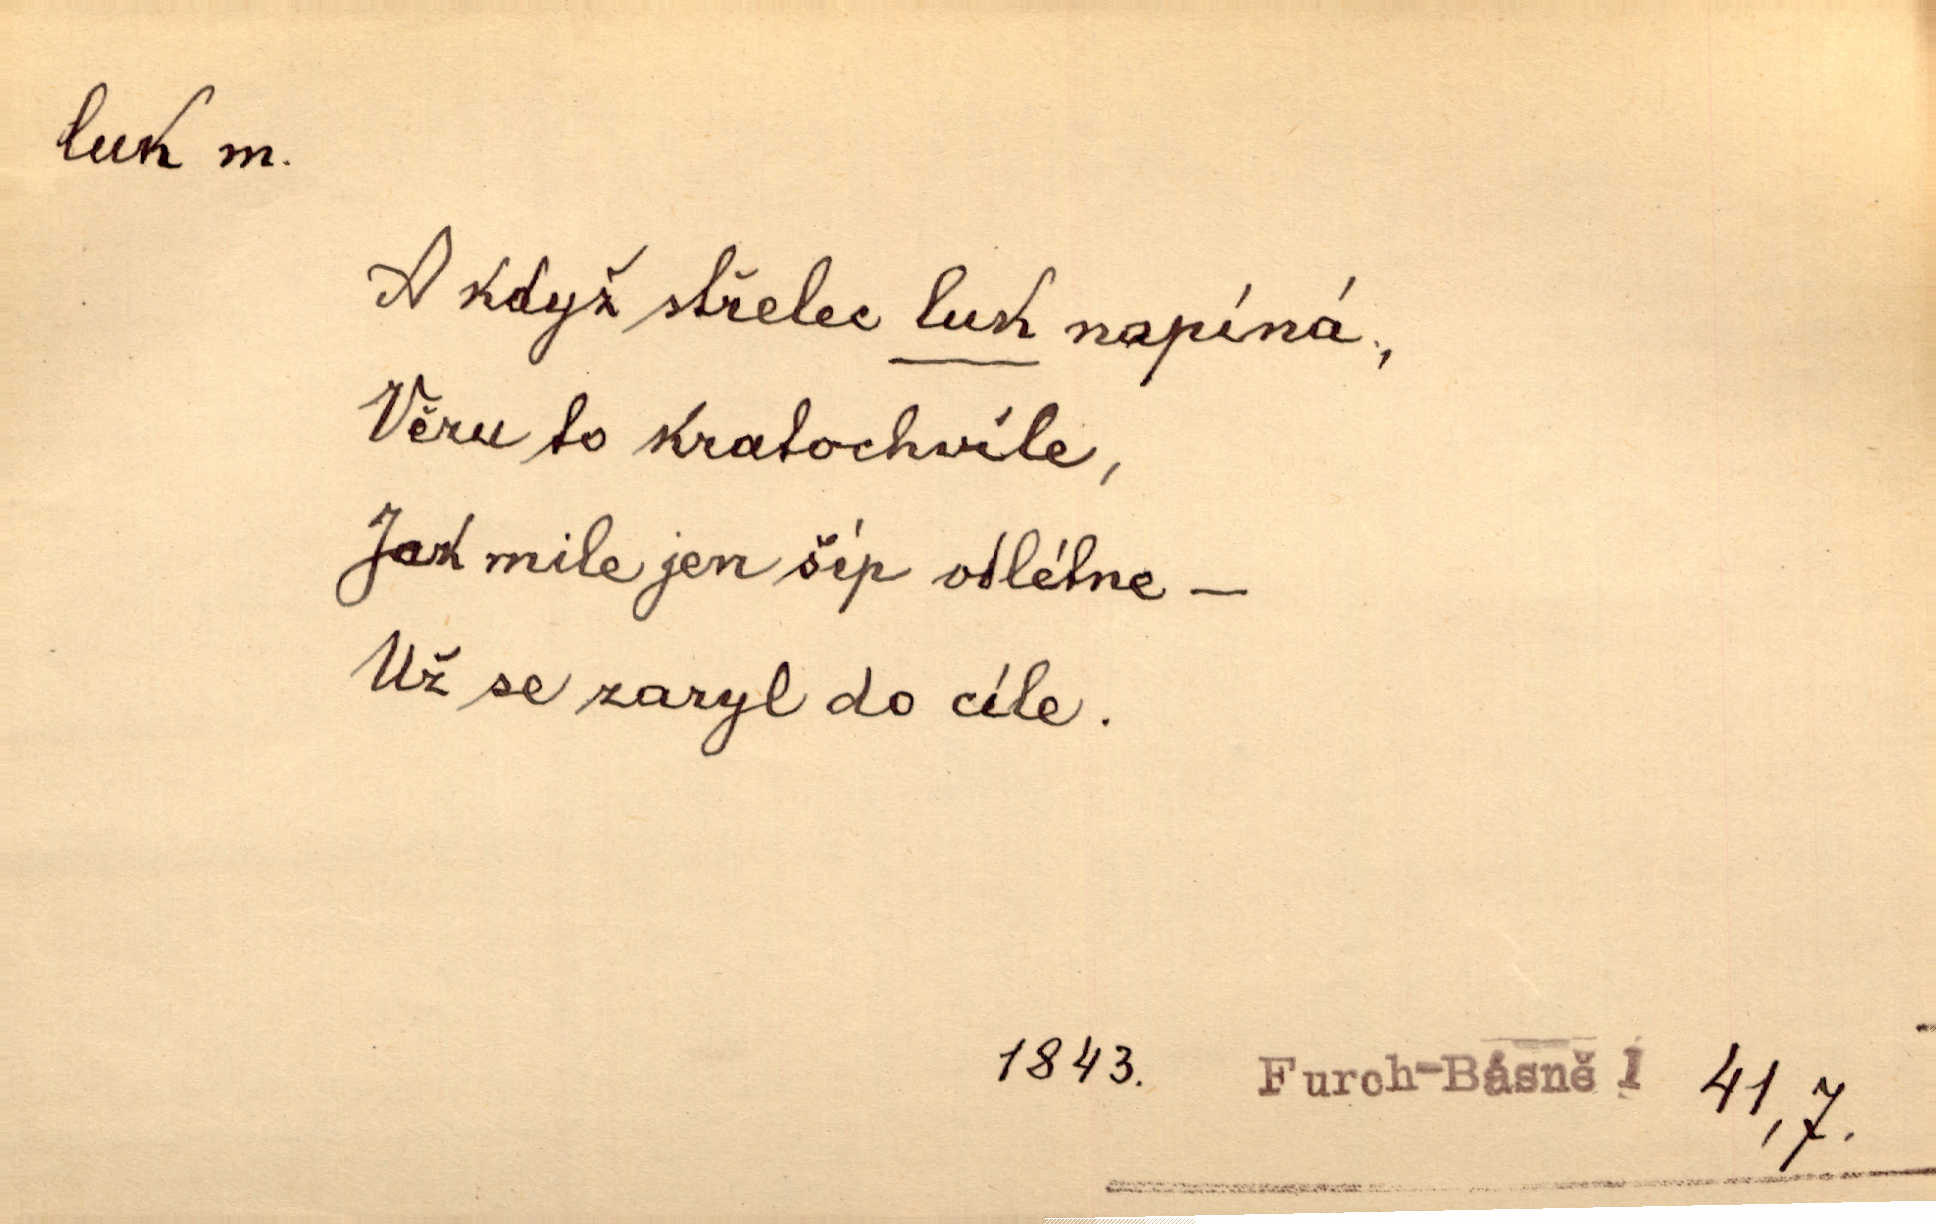 luk m.
A když střelec luk napíná,
Věru to kratochvíle,
Jak mile jen šíp odlétne —
Už se zaryl do cíle.
1843. Furch-Básně 1 41,7.